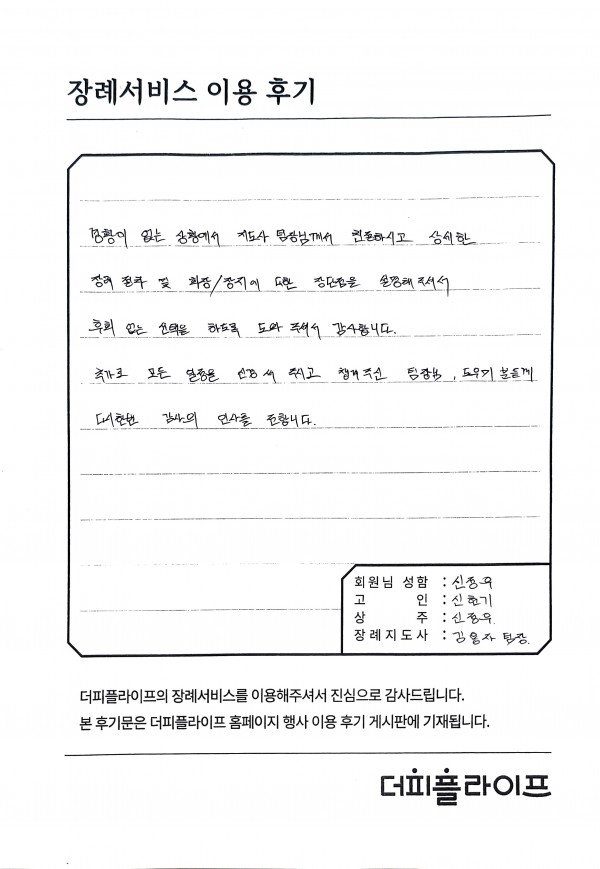 장례서비스 이용 후기
경황이 없는 상황에서 지도사 팀장님께서 친절하시고 상세한
장례 절차 및 화장/장지에 대한 장단점을 설명해 주셔서
후회 없는 선택을 하도록 도와 주셔서 감사합니다.
추가로 모든 일정을 신경 써 주시고 챙겨 주신 팀장님, 도우미 분들께
다시한번 감사의 인사를 전합니다.
회원님 성함 : 신정우
고 인 : 신현기
상 주 : 신정우
장례지도사 : 김용자 팀장.
더피플라이프의 장례서비스를 이용해주셔서 진심으로 감사드립니다.
본 후기문은 더피플라이프 홈페이지 행사 이용 후기 게시판에 기재됩니다.
더피플라이프